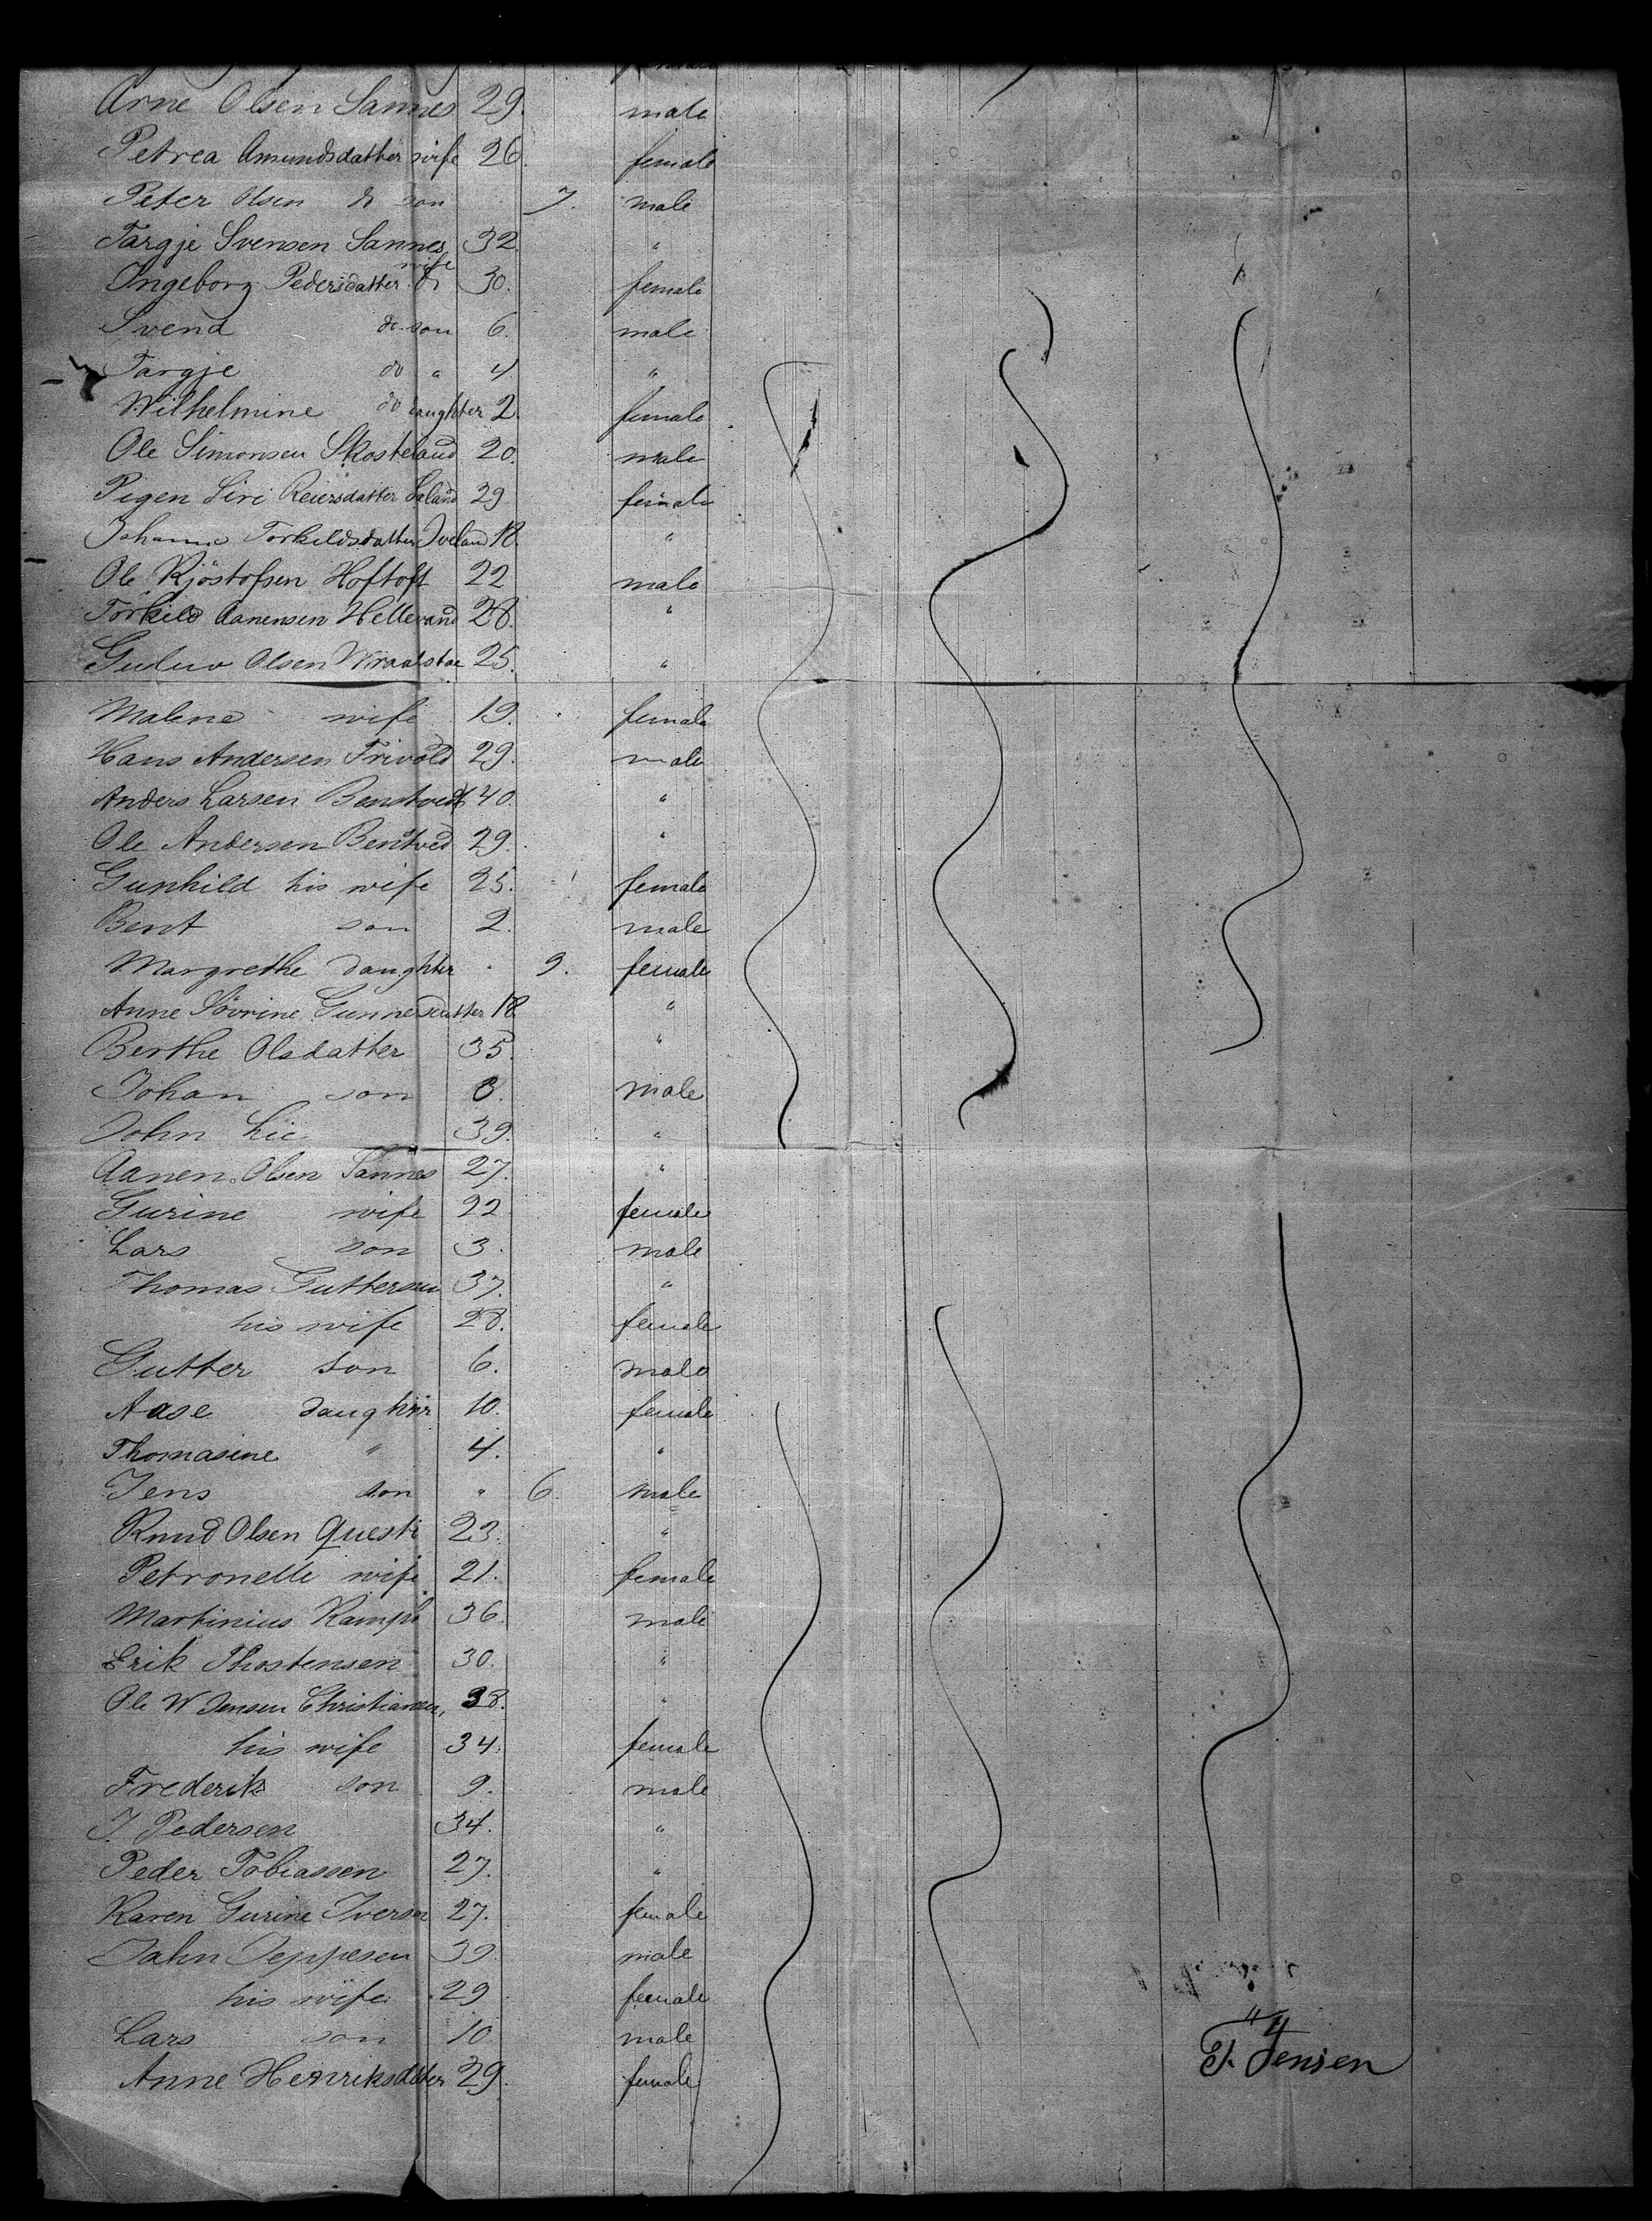 Arne Olsen Sannes 29. male
Petrea Amundsdatter wife 26. female
Peter Olsen do son 7. male
Targje Svensen Sannes 32. "
Ingeborg Pedersdatter do wife 30. female
Svend do son 6. male
Targje do " 4 "
Wilhelmine do daughter 2. female
Ole Simonsen Skosteland 20. male
Pigen Siri Reiersdatter 29 female
Johanne Torkildsdatter Iveland 18. "
Ole Kjöstofsen Hoftoft 22 male
Torkild Aanensen Helle 28. "
Olsen 25. "
Malene wife 19. female
Hans Andersen Trivold 29. male
Anders Larsen Benstvedt 40. "
Ole Andersen Bentved 29. "
Gunhild his wife 25. female
Bent son 2. male
Margrethe daughter " 9. female
Anne Sövrine Gunnesdatter 18 "
Berthe Olsdatter 35. "
Johan son 8. male
John Lie 39. "
Aanen Olsen Sannes 27. "
Gurine wife 22. female
Lars son 3. male
Thomas Guttersen 37. "
his wife 28. female
Gutter son 6. male
Aase daughter 10. female
Thomasine " 4. "
Jens son " 6. male
Knud Olsen Questi 23. "
Petronelle wife 21. female
Martinius 36. male
Erik Thostensen 30. "
Ole W Jensen 38. "
his wife 34. female
Frederik son 9. male
J. Pedersen 34. "
Peder Tobiassen 27. "
Karen Gurine Iversen 27. female
Jahn Jeppesen 39. male
his wife 29 female
Lars son 10 male
Anne Henriksdatter 29. female
Jensen